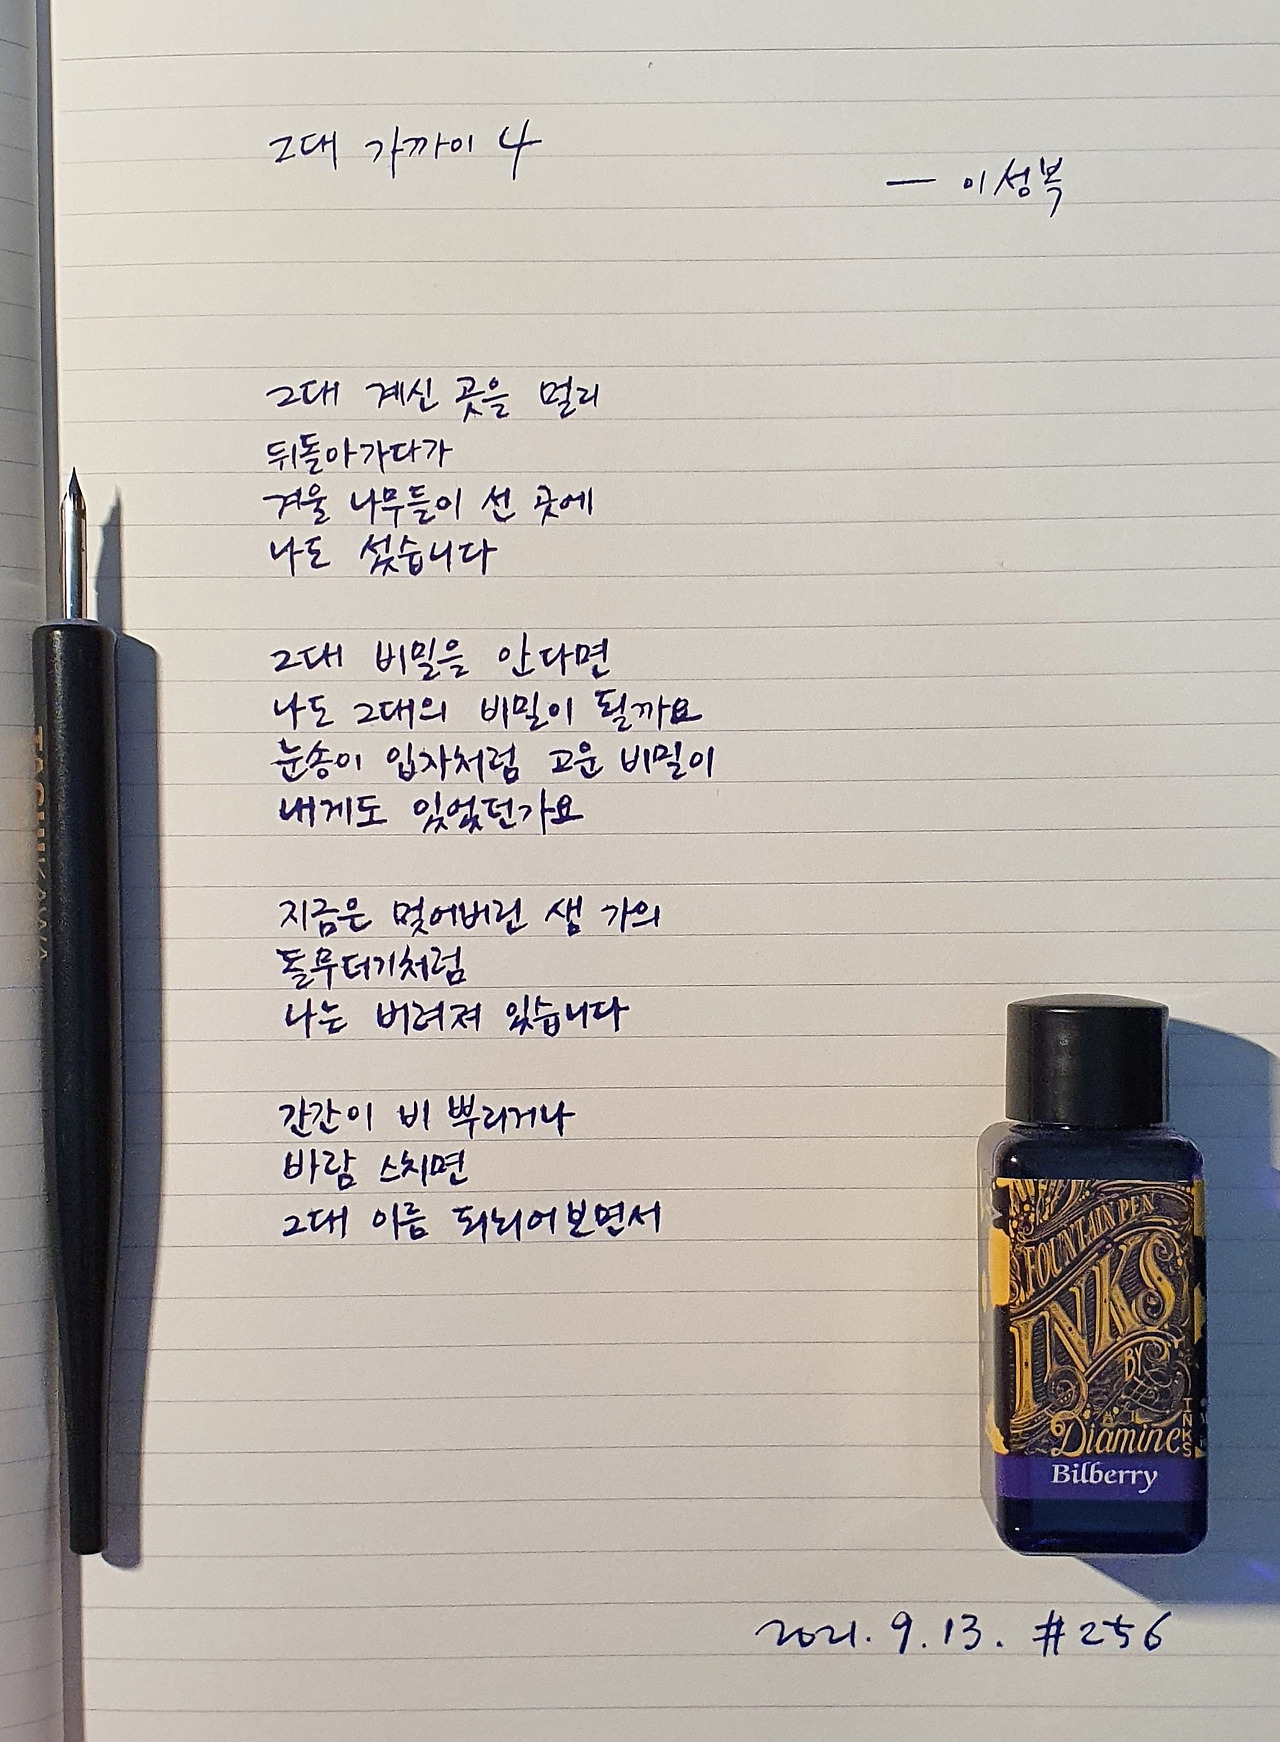 그대 가까이 4
— 이성복
그대 계신 곳을 멀리
뒤돌아가다가
겨울 나무들이 선 곳에
나도 섰습니다
그대 비밀을 안다면
나도 그대의 비밀이 될까요
눈송이 입자처럼 고운 비밀이
내게도 있었던가요
지금은 멎어버린 샘 가의
돌무더기처럼
나는 버려져 있습니다
간간이 비 뿌리거나
바람 스치면
그대 이름 되뇌어보면서
TACHIKAWA
FOUNTAIN PEN
INKS
BY
Diamine
INKS
Bilberry
2021. 9. 13. #256